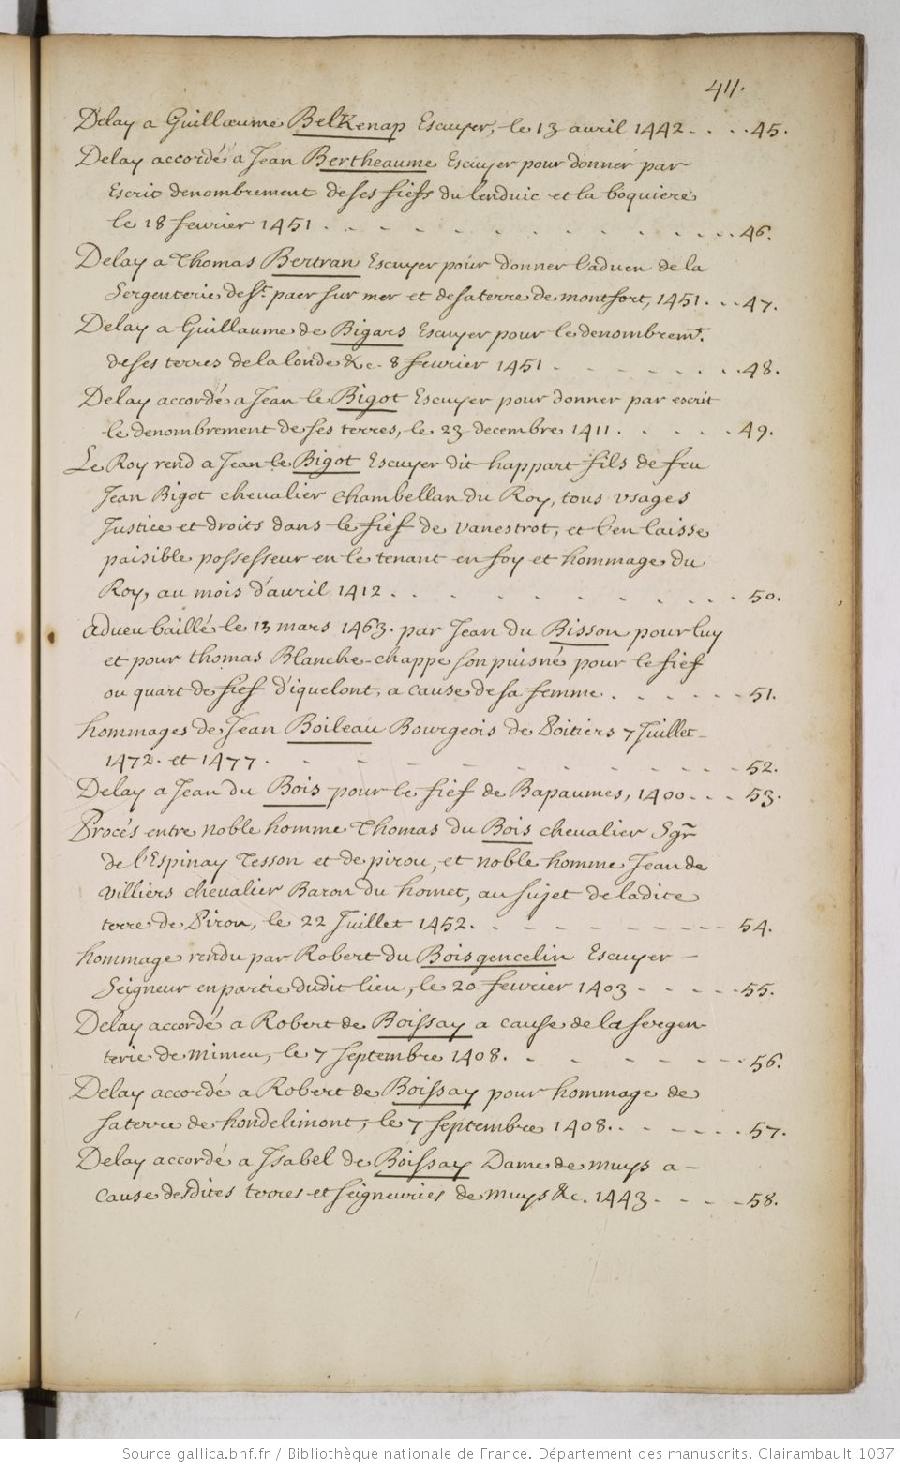 411.
Delay a Guillaume Belkenap Escuyer, le 13 avril 1442. . . . 45.
Delay accordé a Jean Bertheaume Escuyer pour donner par
Escrit denombrement de ses fiefs du lenduic et la boquiere
le 18 fevrier 1451 . . . . . . . . . . . . 46.
Delay a Thomas Bertran Escuyer pour donner l'adueu de la
Sergenterie de St. paer sur mer et de sa terre de montfort, 1451. . . 47.
Delay a Guillaume de Bigars Escuyer pour le denombremt.
de ses terres de la londe &c. 8 fevrier 1451 . . . . . . . 48.
Delay accordé a Jean le Bigot Escuyer pour donner par escrit
le denombrement de ses terres, le 23 decembre 1411 . . . . . 49.
Le Roy rend a Jean le Bigot Escuyer dit happart fils de feu
Jean Bigot chevalier chambellan du Roy, tous usages
Justice et droits dans le fief de vanestrot, et l'en laisse
paisible possesseur en le tenant en foy et hommage du
Roy, au mois d'avril 1412 . . . . . . . . . . 50.
Adueu baillé le 13 mars 1463. par Jean du Bisson pour luy
et pour thomas Blanche-chappe son puisné pour le fief
ou quart de fief d'iquelont, a cause de sa femme . . . . . . 51.
hommages de Jean Boileau Bourgeois de Poitiers 7 Juillet
1472. et 1477 . . . . . . . . . . . 52.
Delay a Jean du Bois pour le fief de Bapaumes, 1400 . . . 53.
Procés entre noble homme Thomas du Bois chevalier Sgr
de l'Espinay Tesson et de pirou, et noble homme Jean de
villiers chevalier Baron du homet, au sujet de ladite
terre de Pirou, le 22 Juillet 1452. - - - - - - - - 54.
hommage rendu par Robert du Boisgencelin Escuyer -
Seigneur en partie dudit lieu, le 20 fevrier 1403 - - - - - 55.
Delay accordé a Robert de Boissay a cause de la sergen
terie de mimeu, le 7 septembre 1408. - - - - - - - 56.
Delay accordé a Robert de Boissay pour hommage de
sa terre de hondelimont, le 7 septembre 1408. . - - - - 57.
Delay accordé a Isabel de Boissay Dame de muys a -
cause desdites terres et seigneuries de muys &c. 1443 - - - - 58.
Source gallica.bnf.fr / Bibliothèque nationale de France. Département des manuscrits. Clairambault 1037